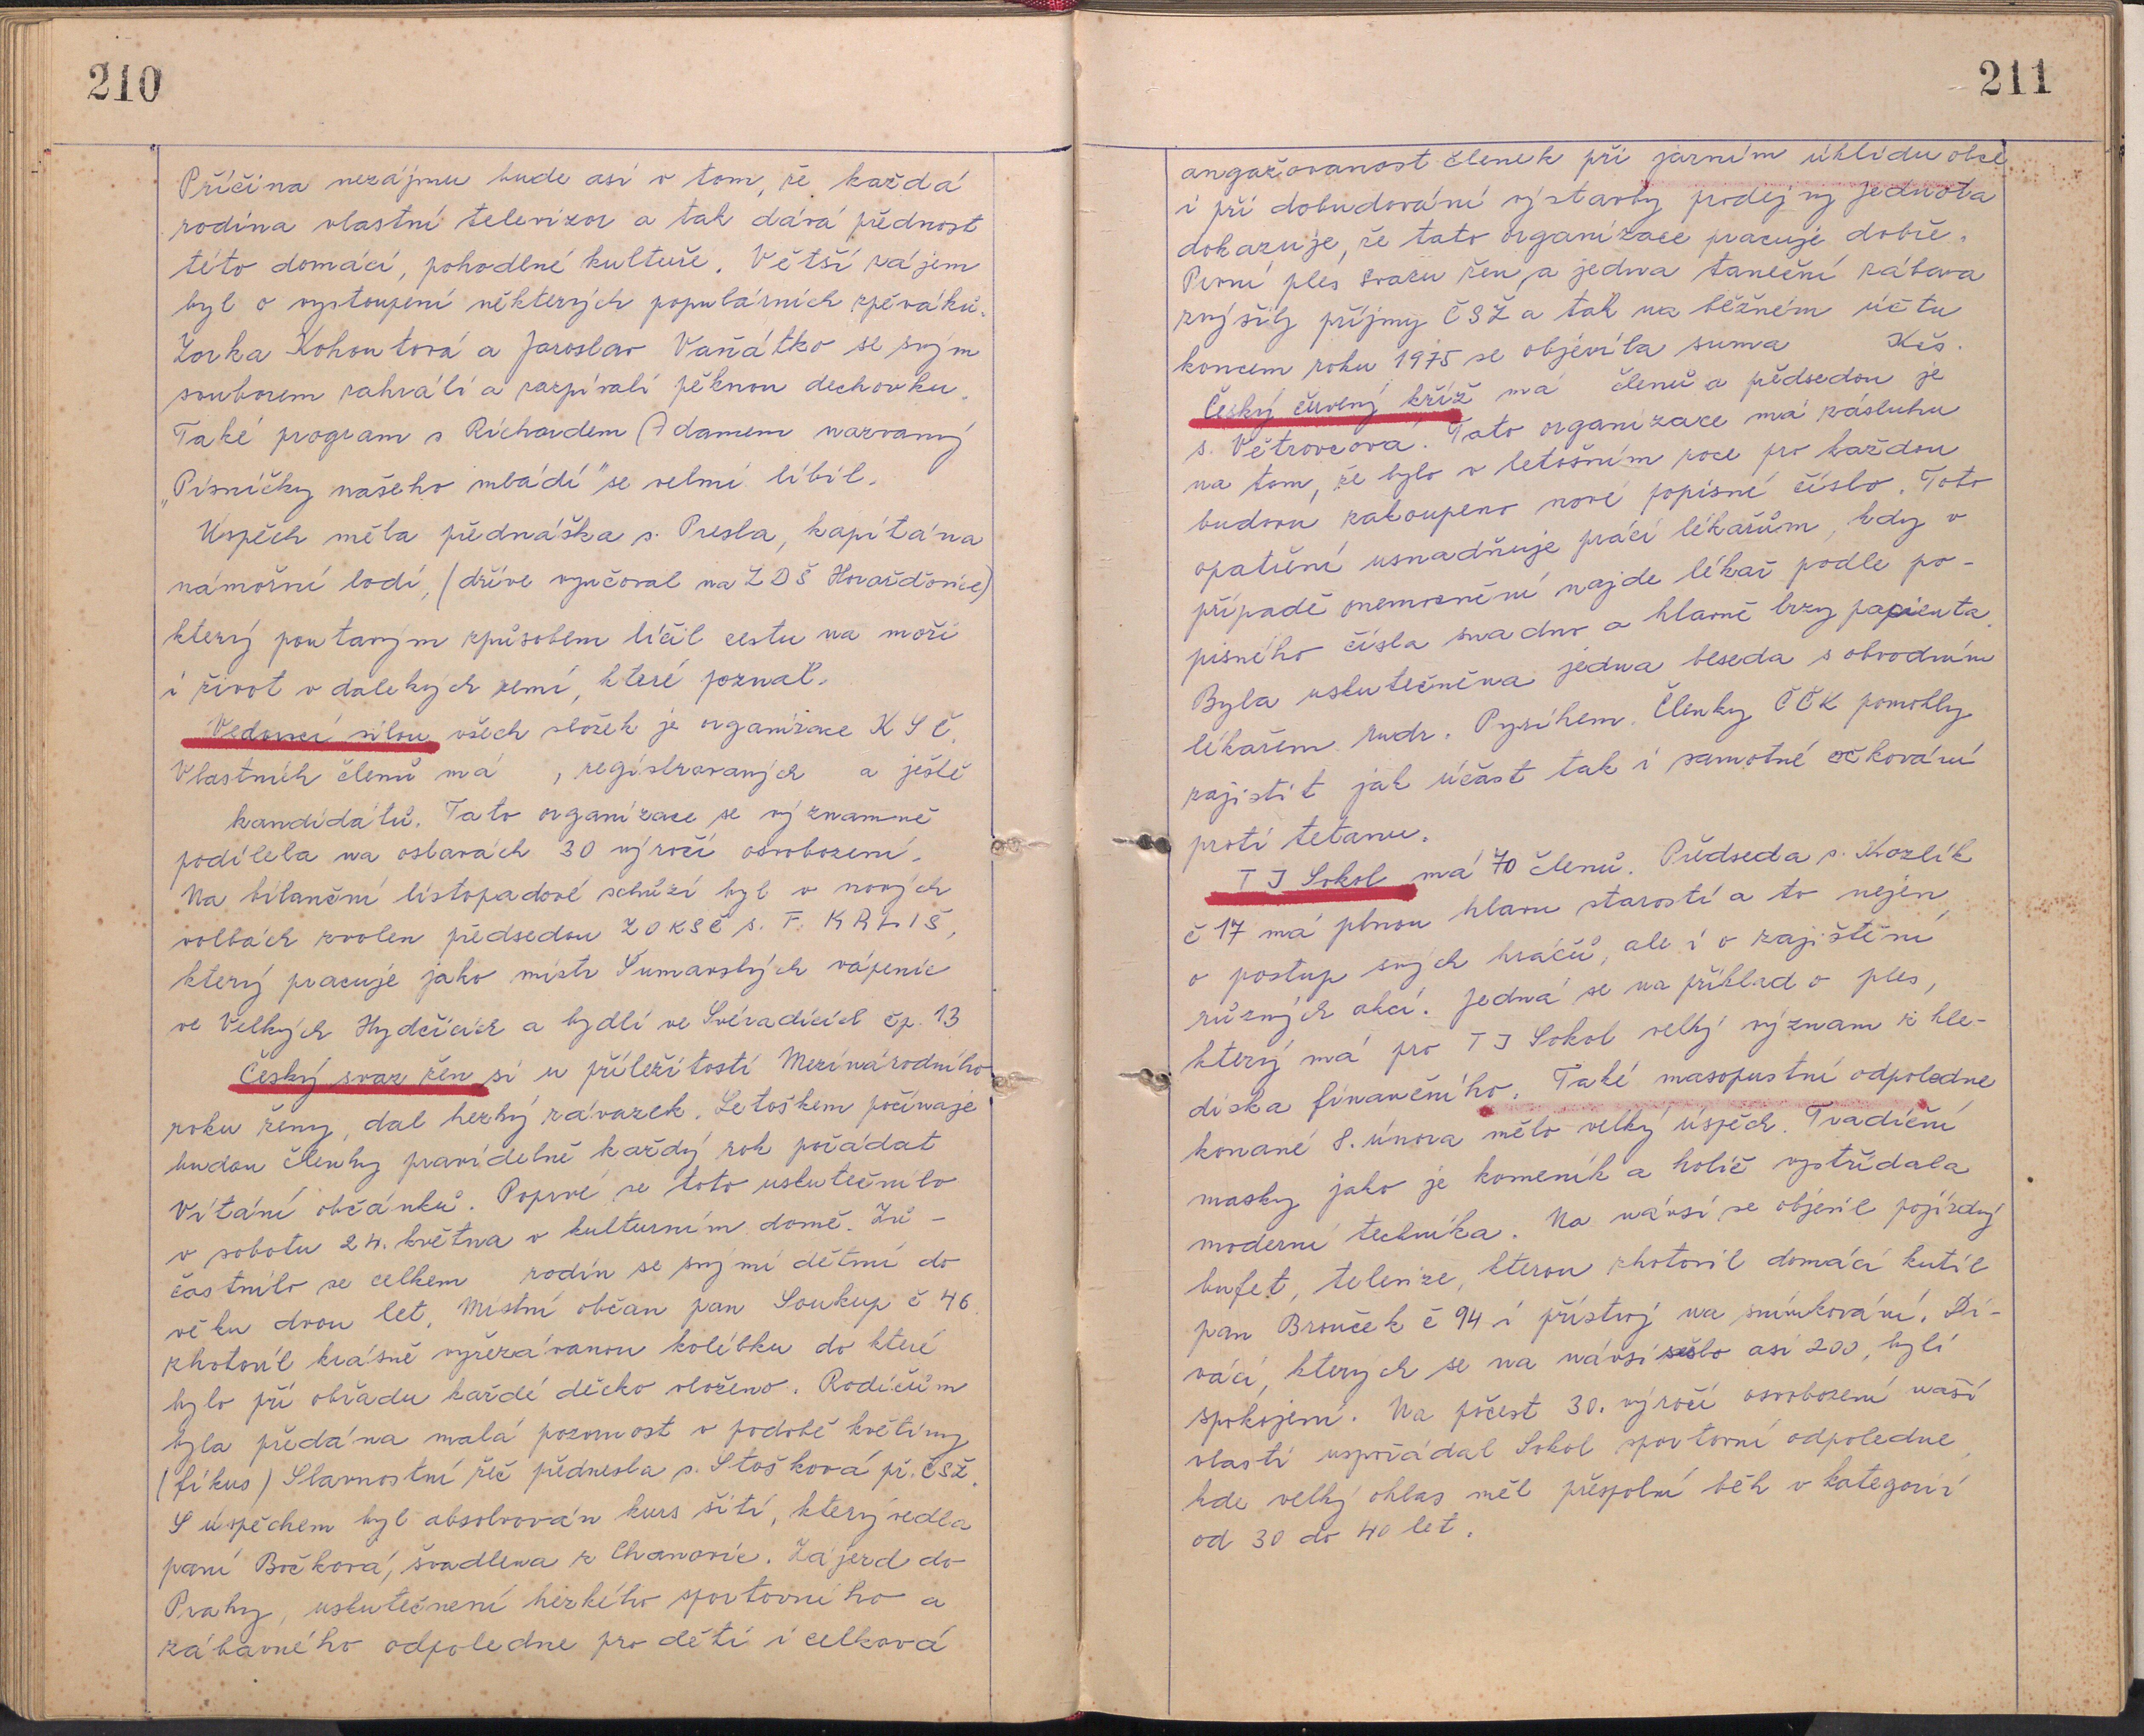 210
Příčina nezájmu bude asi v tom, že každá
rodina vlastní televizor a tak dává přednost
této domácí, pohodlné kultuře. Větší zájem
byl o vystoupení některých populárních zpěváků.
Zorka Kohoutová a Jaroslav Vaňátko se svým
souborem zahráli a zazpívali pěknou dechovku.
Také program s Richardem Adamem nazvaný
„Písničky našeho mládí" se velmi líbil.
Úspěch měla přednáška s. Presla, kapitána
námořní lodi, (dříve vyučoval na ZDŠ Horažďovice)
který poutavým způsobem líčil cestu na moři
i život v dalekých zemí, které poznal.
Vedoucí silou všech složek je organizace KSČ.
Vlastních členů má , registrovaných a ještě
kandidátů. Tato organizace se významně
podílela na oslavách 30 výročí osvobození.
Na bilanční listopadové schůzi byl v nových
volbách zvolen předsedou ZO KSČ s. F. KRLIŠ,
který pracuje jako mistr Šumavských vápenic
ve Velkých Hydčicích a bydlí ve Svéradicích čp. 13
Český svaz žen si u příležitosti Mezinárodního
roku ženy, dal hezký závazek. Letoškem počínaje
budou členky pravidelně každý rok pořádat
Vítání občánků. Poprvé se toto uskutečnilo
v sobotu 24. května v kulturním domě. Zú-
častnilo se celkem rodin se svými dětmi do
věku dvou let. Místní občan pan Soukup č 46
zhotovil krásně vyřezávanou kolébku do které
bylo při obřadu každé děcko vloženo. Rodičům
byla předána malá pozornost v podobě květiny
(fíkus) Slavnostní řeč přednesla s. Stošková př. ČSŽ.
S úspěchem byl absolvován kurs šití, který vedla
paní Bočková, švadlena z Chanovic. Zájezd do
Prahy, uskutečnení hezkého sportovního a
zábavného odpoledne pro děti i celková
211
angažovanost členek při jarním úklidu obce
i při dobudování výstavby prodejny Jednota
dokazuje, že tato organizace pracuje dobře.
První ples svazu žen a jedna taneční zábava
zvýšily příjmy ČSŽ a tak na běžném účtu
koncem roku 1975 se objevila suma Kčs.
Český červený kříž má členů a předsedou je
s. Větrovcová. Tato organizace má zásluhu
na tom, že bylo v letošním roce pro každou
budovu zakoupeno nové popisné číslo. Toto
opatření usnadňuje práci lékařům, kdy v
případě onemocnění najde lékař podle po-
pisného čísla snadno a hlavně brzy pacienta.
Byla uskutečněna jedna beseda s obvodním
lékařem Mudr. Pysihem. Členky ČČK pomohly
zajistit jak účast tak i samotné očkování
proti tetanu.
TJ Sokol má 70 členů. Předseda s. Kozlík
č 17 má plnou hlavu starostí a to nejen
o postup svých hráčů, ale i o zajištění
různých akcí. Jedná se na příklad o ples,
který má pro TJ Sokol velký význam z hle-
diska finančního. Také masopustní odpoledne
konané 8. února mělo velký úspěch. Tradiční
masky jako je komeník a holič vystřídala
moderní technika. Na návsi se objevil pojízdný
bufet, televize, kterou zhotovil domácí kutil
pan Brouček č 94 i přístroj na snímkování. Di-
váci, kterých se na návsi sešlo asi 200, byli
spokojeni. Na počest 30. výročí osvobození naší
vlasti uspořádal Sokol sportovní odpoledne,
kde velký ohlas měl přespolní běh v kategorii
od 30 do 40 let.